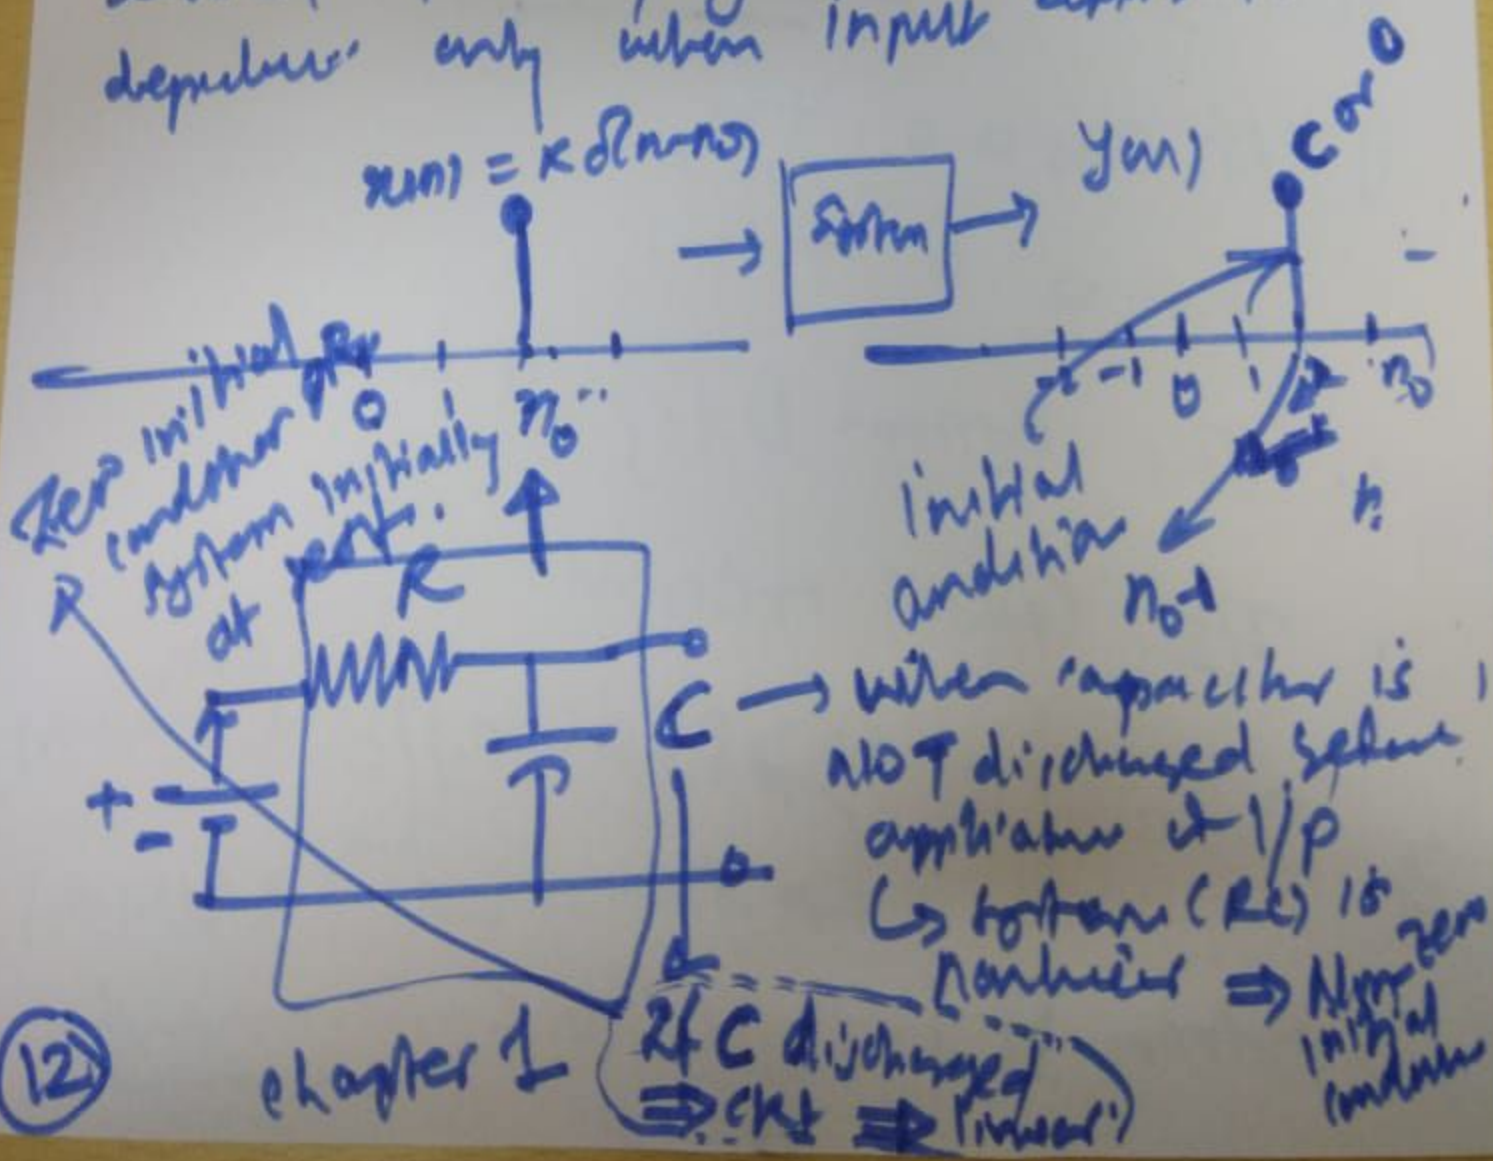 only when input
x(n) = K δ(n-n₀)
System
y(n)
C or 0
0 1 n₀
-2 -1 0 1 n₀
Zero initial
condition or
system initially
at rest.
initial
condition
n₀-1
n
R
R
C
+
-
→ when capacitor is
NOT discharged before
application of i/p
↳ system (RC) is
nonlinear ⇒ Non zero
initial
condition
If C discharged
⇒ ckt ⇒ linear
chapter 1
12